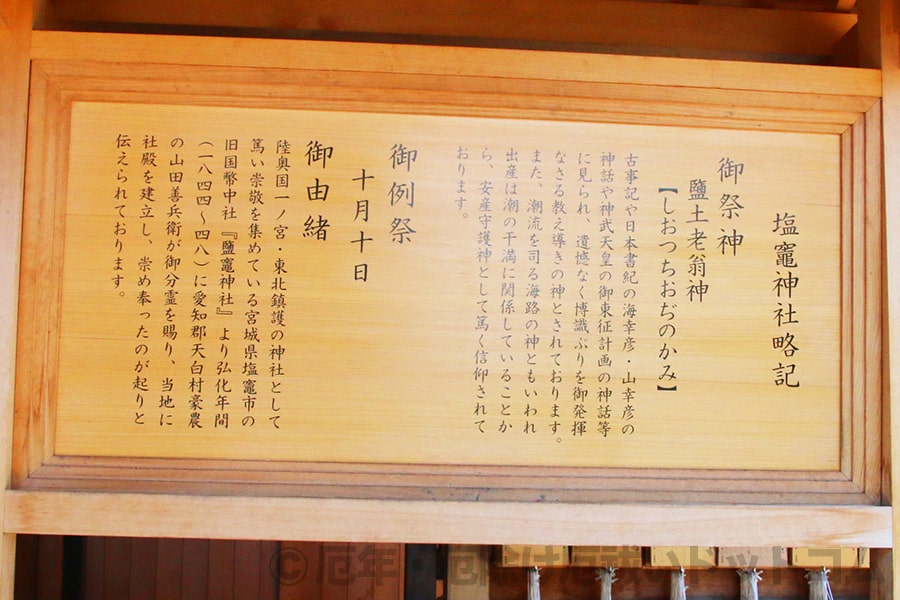 塩竈神社略記
御祭神
鹽土老翁神
【しおつちおぢのかみ】
古事記や日本書紀の海幸彦・山幸彦の
神話や神武天皇の御東征計画の神話等
に見られ、遺憾なく博識ぶりを御発揮
なさる教え導きの神とされております。
また、潮流を司る海路の神ともいわれ
出産は潮の干満に関係していることか
ら、安産守護神として篤く信仰されて
おります。
御例祭
十月十日
御由緒
陸奥国一ノ宮・東北鎮護の神社として
篤い崇敬を集めている宮城県塩竈市の
旧国幣中社『鹽竈神社』より弘化年間
(一八四四~四八)に愛知郡天白村豪農
の山田善兵衛が御分霊を賜り、当地に
社殿を建立し、崇め奉ったのが起りと
伝えられております。
©厄年・厄除け厄祓いドットコム